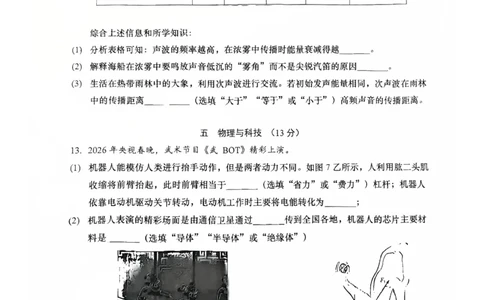 综合上述信息和所学知识：
(1) 分析表格可知：声波的频率越高，在浓雾中传播时能量衰减得越______。
(2) 解释海船在浓雾中要鸣放声音低沉的“雾角”而不是尖锐汽笛的原因______。
(3) 生活在热带雨林中的大象，利用次声波进行交流。若初始发声能量相同，次声波在雨林
中的传播距离____ ____（选填“大于”“等于”或“小于”）高频声音的传播距离。
五 物理与科技（13 分）
13. 2026 年央视春晚，武术节目《武 BOT》精彩上演。
(1) 机器人能模仿人类进行抬手动作，但是两者动力不同。如图 7 乙所示，人利用肱二头肌
收缩将前臂抬起，此时前臂相当于______（选填“省力”或“费力”）杠杆；机器人
依靠电机驱动关节转动，电动机工作时主要将电能转化为______；
(2) 机器人表演的精彩场面是由通信卫星通过______传到全国各地，机器人的芯片主要材
料是______（选填“导体”“半导体”或“绝缘体”）